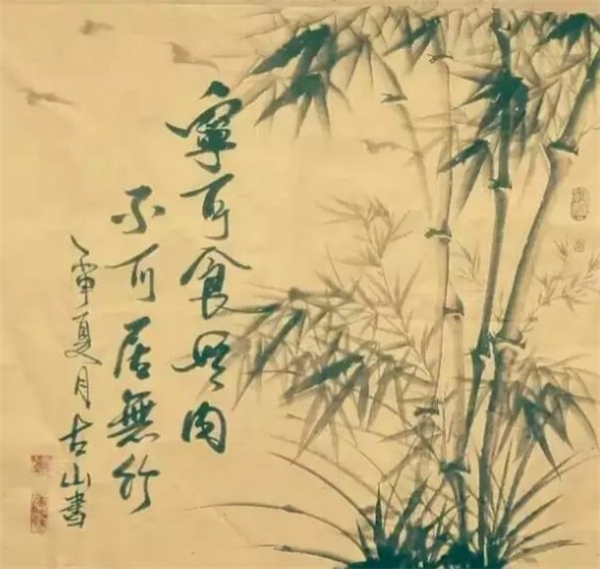 寧可食無肉
不可居無竹
丙申夏月古山書